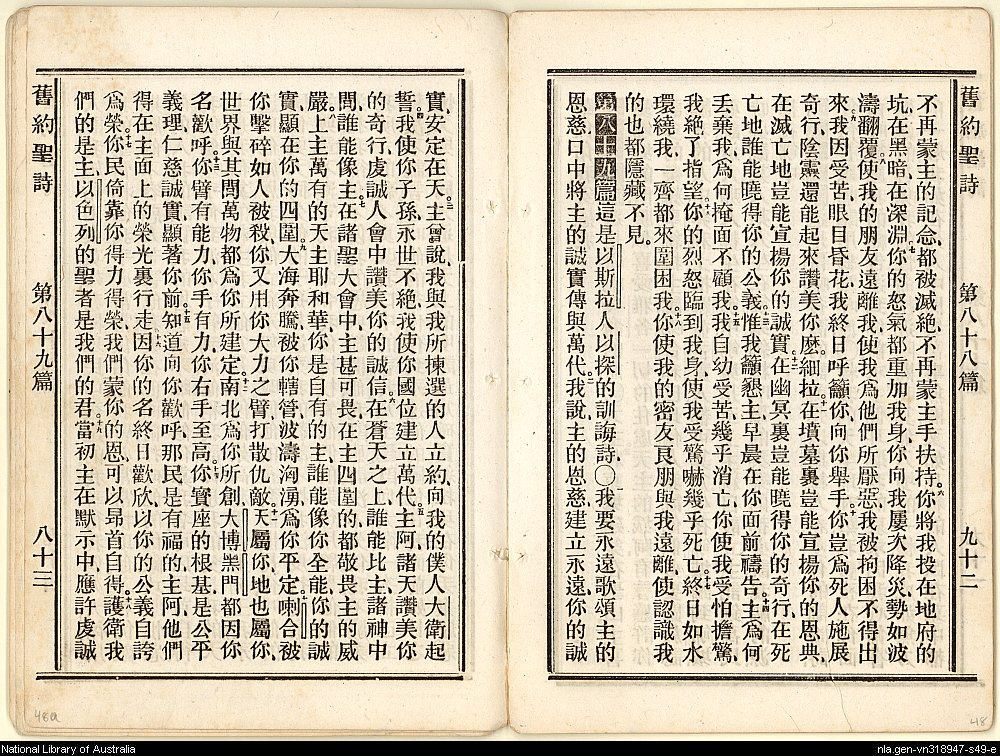 舊約聖詩 第八十八篇 九十二
不再蒙主的記念、都被滅絕、不再蒙主手扶持。六你將我投在地府的
坑在黑暗在深淵。七你的怒氣都重加我身、你向我屢次降災、勢如波
濤翻覆。八使我的朋友遠離我、使我爲他們所厭惡、我被拘困不得出
來。九我因受苦、眼目昏花、我終日呼籲你、向你舉手。十你豈爲死人施展
奇行、陰靈還能起來讚美你麽、細拉。十一在墳墓裏豈能宣揚你的恩典、
在滅亡地豈能宣揚你的誠實。十二在幽冥裏豈能曉得你的奇行、在死
亡地誰能曉得你的公義。十三惟我籲懇主、早晨在你面前禱告。十四主爲何
丟棄我、爲何掩面不顧我。十五我自幼受苦、幾乎消亡、你使我受怕擔驚、
我絕了指望。十六你的烈怒臨到我身、使我受驚嚇、幾乎死亡。十七終日如水
環繞我、一齊都來圍困我。十八你使我的密友良朋與我遠離、使認識我
的也都隱藏不見。
第八十九篇 這是以斯拉人以探的訓誨詩、〇我要永遠歌頌主的
恩慈、口中將主的誠實傳與萬代。二我說、主的恩慈建立永遠、你的誠
實、安定在天。三主曾說、我與我所揀選的人立約、向我的僕人大衛起
誓。四我使你子孫、永世不絕、我使你國位建立萬代。五主阿、諸天讚美你
的奇行、虔誠人會中讚美你的誠信。六在蒼天之上、誰能比主、諸神中
間、誰能像主。七在諸聖大會中、主甚可畏、在主四圍的、都敬畏主的威
嚴。八上主萬有的天主耶和華、你是自有的主、誰能像你全能、你的誠
實、顯在你的四圍。九大海奔騰、被你轄管、波濤洶湧、爲你平定。十喇合被
你擊碎、如人被殺、你又用你大力之臂、打散仇敵。十一天屬你、地也屬你、
世界與其間萬物、都爲你所建定。十二南北爲你所創、大博黑門都因你
名歡呼。十三你臂有能力、你手有力、你右手至高。十四你寶座的根基是公平
義理、仁慈誠實顯著你前。十五知道向你歡呼、那民是有福的、主阿、他們
得在主面上的榮光裏行走。十六因你的名終日歡欣、以你的公義自誇
十七爲榮。你民倚靠你得力得榮、我們蒙你的恩、可以昂首自得。十八護衛我
們的是主、以色列的聖者、是我們的君。十九當初主在默示中、應許虔誠
舊約聖詩 第八十九篇 八十三
48
48a
National Library of Australia
nla.gen-vn318947-s49-e